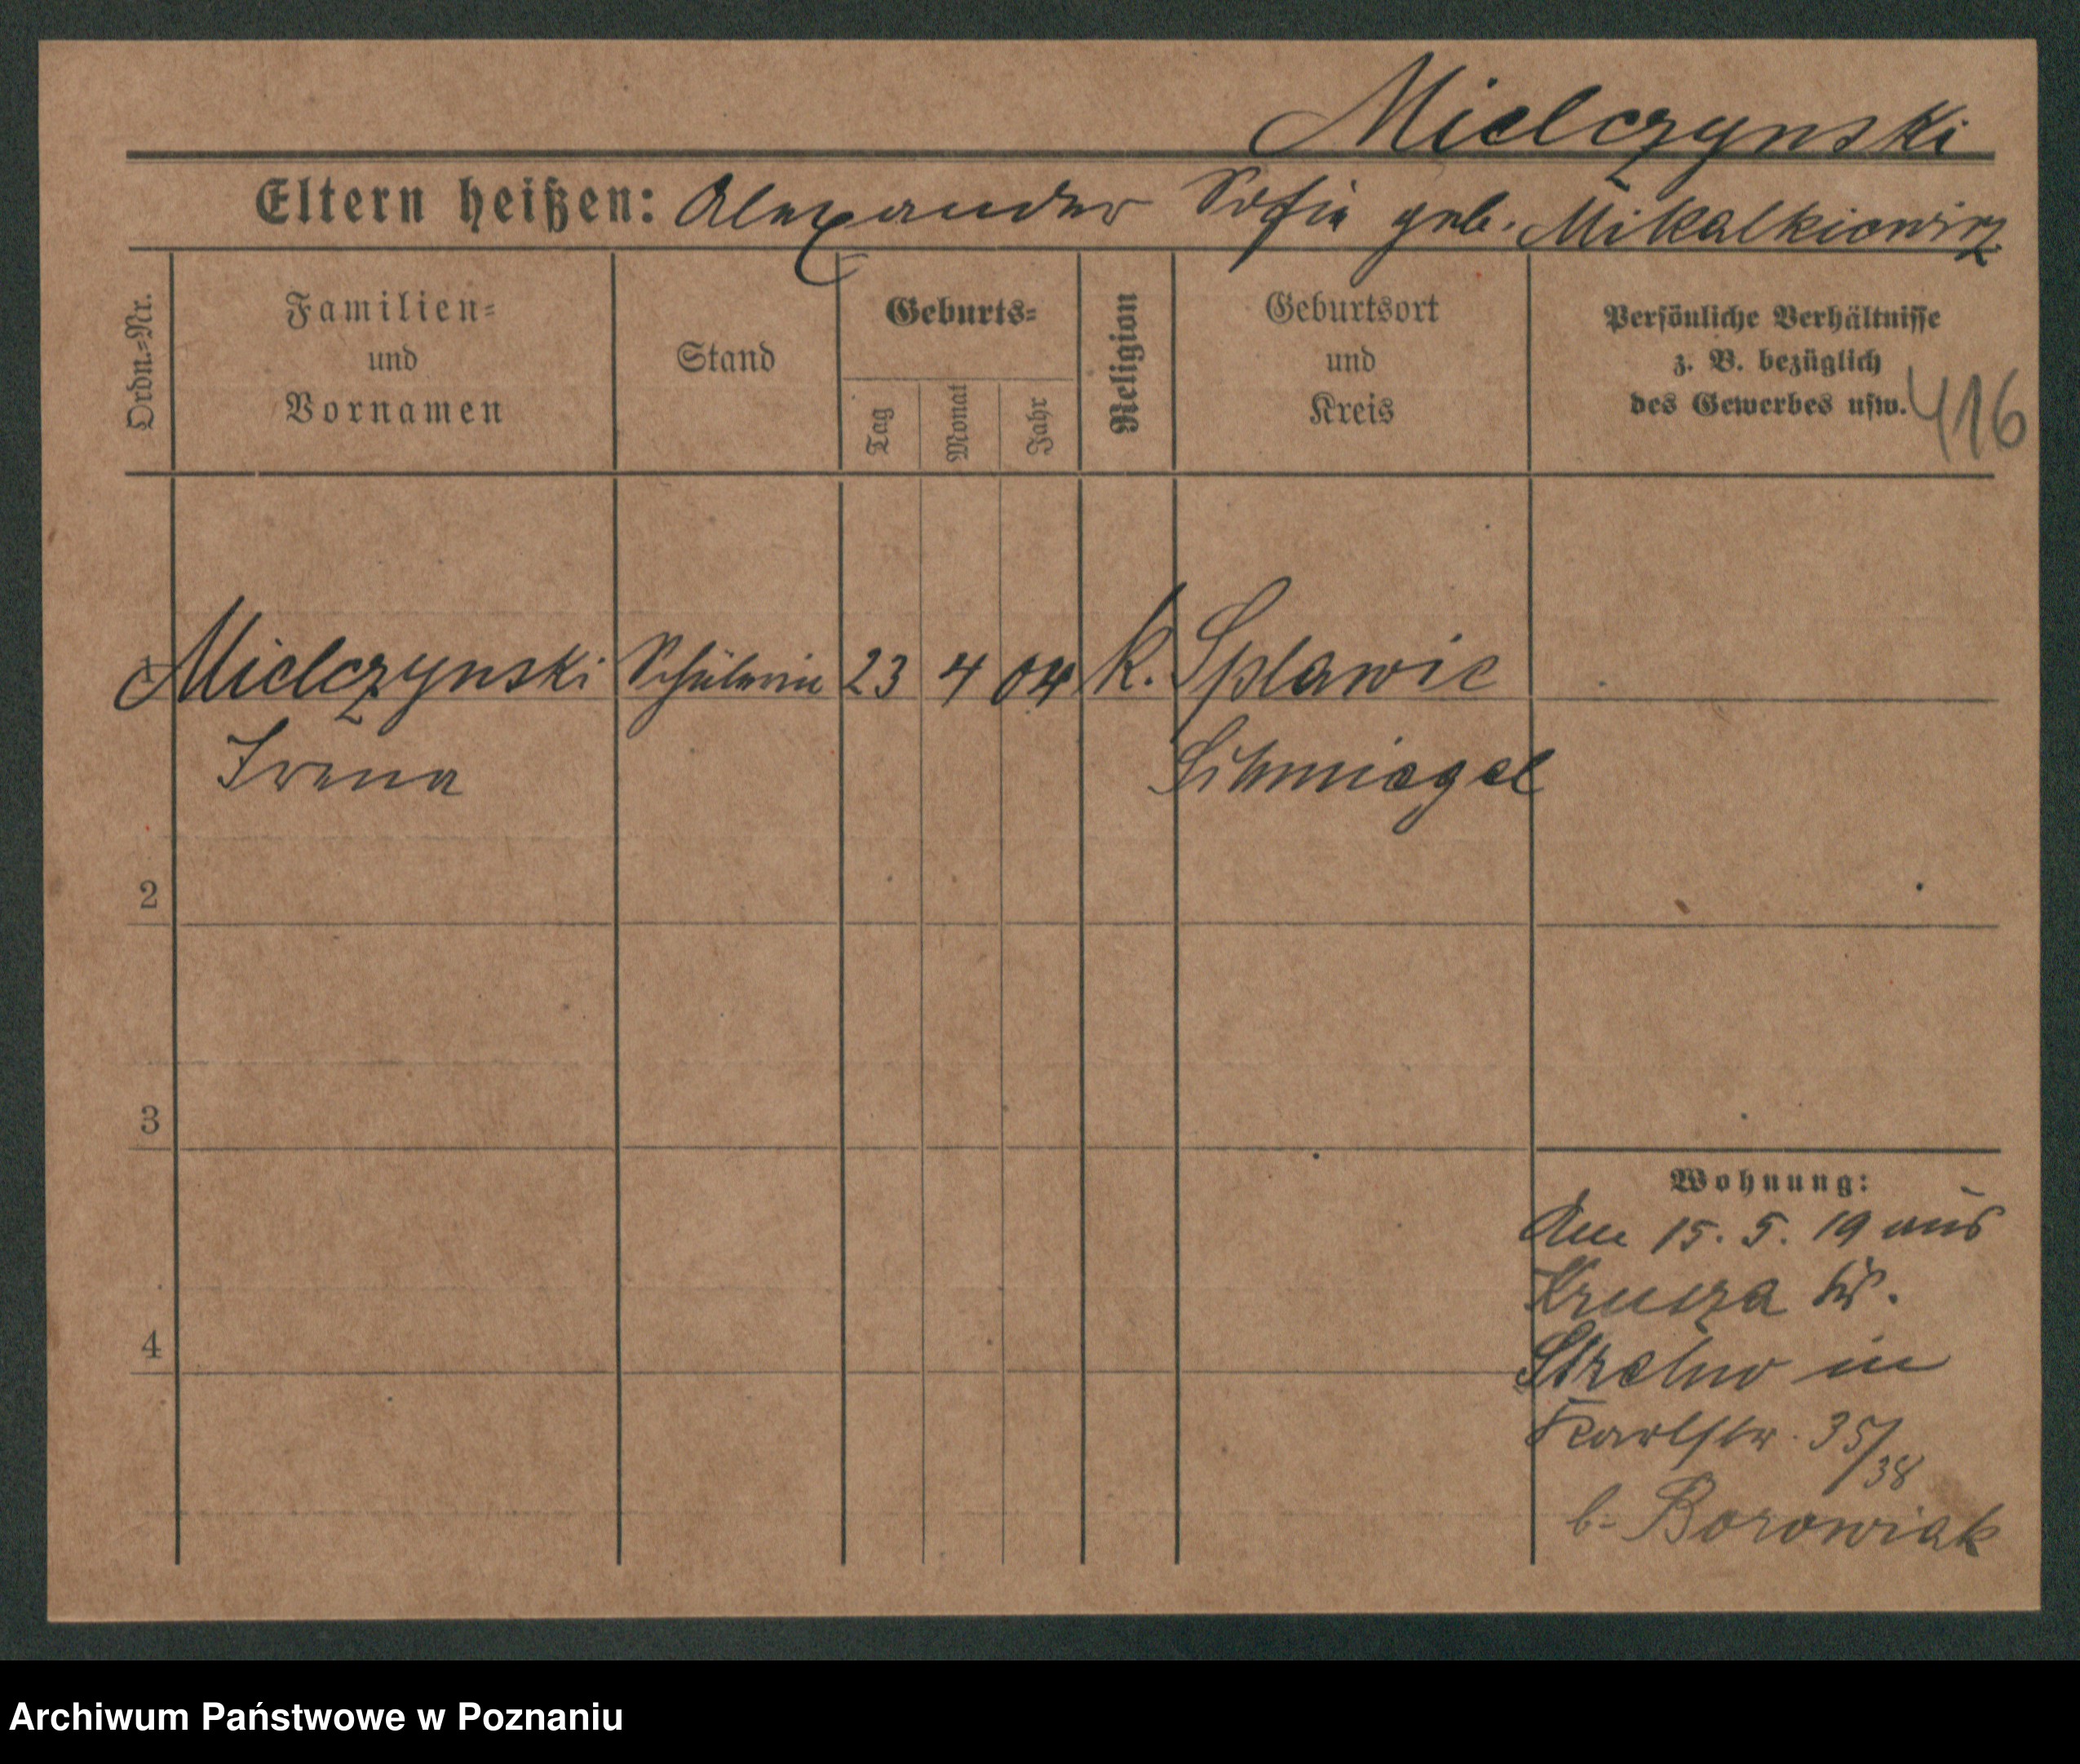 Mielczynski
Eltern heißen: Alexander Sofia geb. Mikalkiewicz
Ordn.=Nr.
Familien=
und
Vornamen
Stand
Geburts=
Tag
Monat
Jahr
Religion
Geburtsort
und
Kreis
Persönliche Verhältnisse
z. B. bezüglich
des Gewerbes usw.
416
1 Mielczynski Schülerin 23 4 04 K. Splawie
Irena Schmiegel
2
3
4
Wohnung:
Am 15. 5. 19 aus
Krusza
Strelno in
Karlstr. 35/38
b. Borowiak
Archiwum Państwowe w Poznaniu